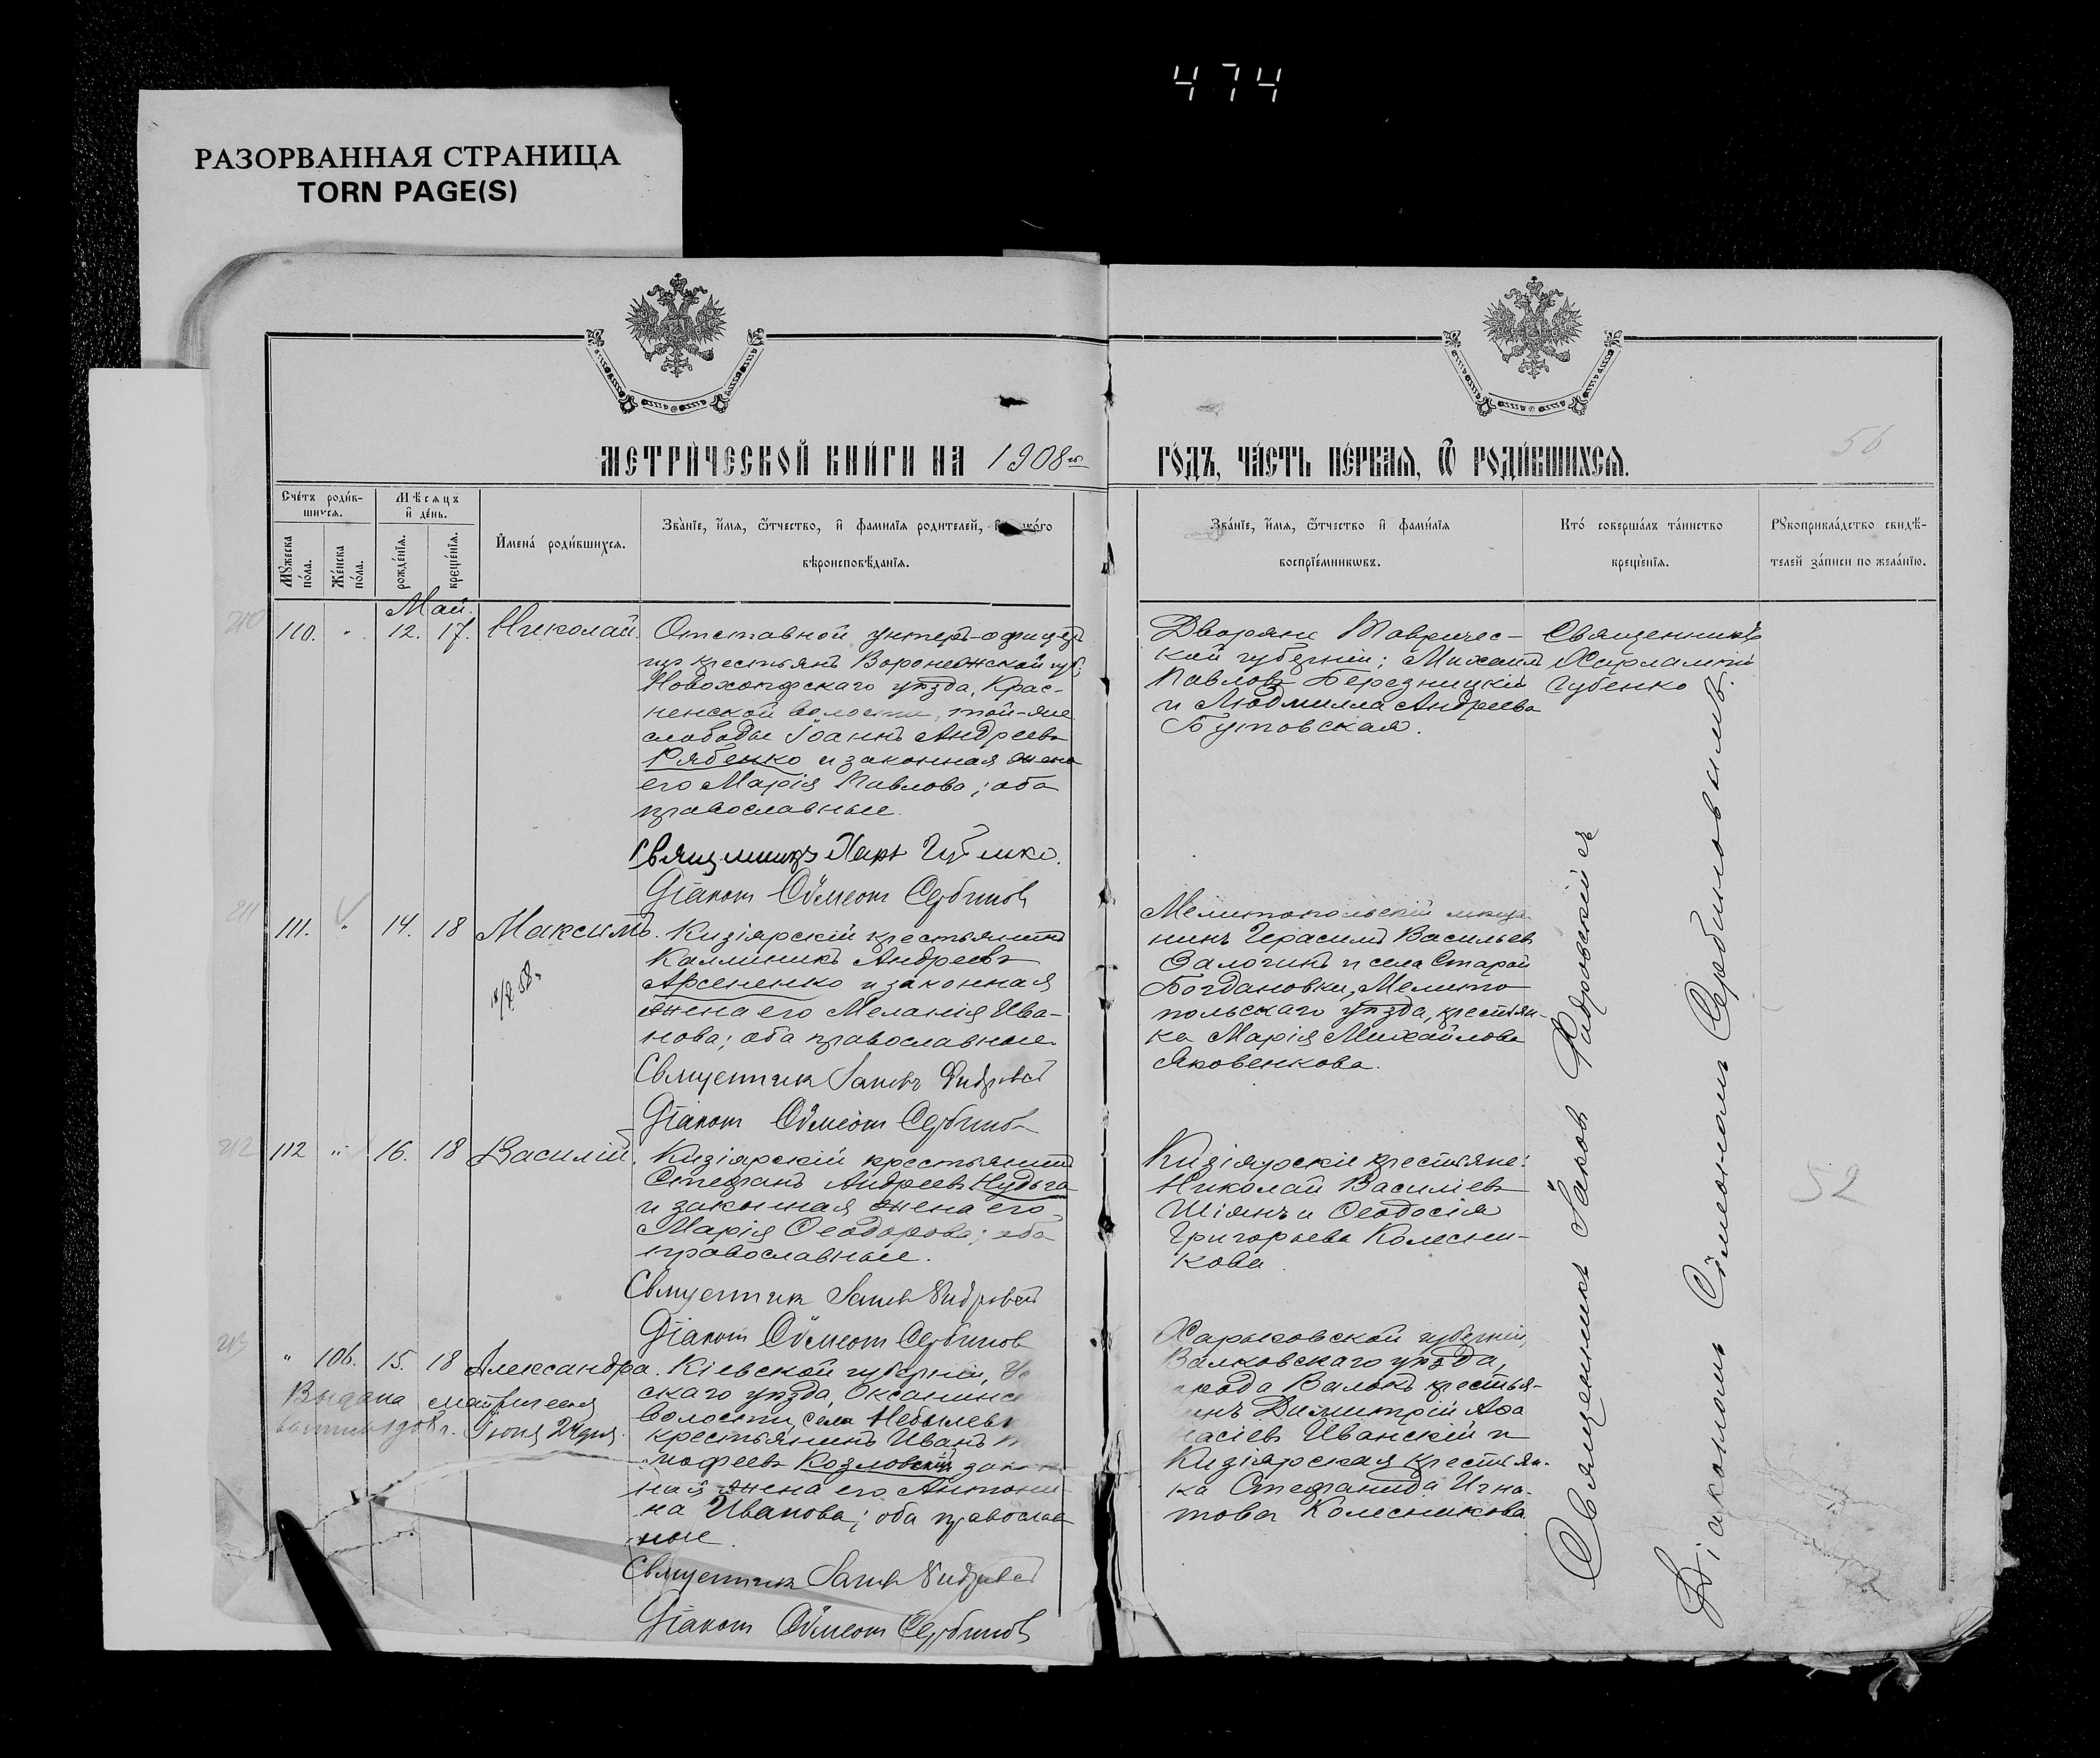 474
РАЗОРВАННАЯ СТРАНИЦА
TORN PAGE(S)
МЕТРИ́ЧЕСКОЙ КНИ́ГИ НА 1908й
ГО́ДЪ, ЧА́СТЬ ПЕ́РВАѦ, Ѿ РОДИ́ВШИХСѦ.
56
Сче́тъ роди́в-
шихсѧ.
Мѣ́сѧцъ
и҆ де́нь.
Мꙋ́жеска
по́ла.
Же́нска
по́ла.
рожде́нїѧ.
креще́нїѧ.
И҆мена́ роди́вшихсѧ.
Зва́нїе, и҆́мѧ, ѻ҆́тчество, и҆ фами́лїѧ родителей, и҆ како́го
вѣроисповѣ́данїѧ.
Зва́нїе, и҆́мѧ, ѻ҆́тчество и҆ фами́лїѧ
воспрїе́мникѡвъ.
Кто́ соверша́лъ та́инство
креще́нїѧ.
Рꙋкоприкла́дство свидѣ́-
телей за́писи по жела́нїю.
Май.
210
110. " 12. 17. Николай.
Отставной унтеръ-офицеръ
изъ крестьянъ Воронежской губ.
Новохоперскаго уѣзда, Крас-
ненской волости, той-же
слободы Іоаннъ Андреевъ
Рябенко и законная жена
его Марія Павлова; оба
православные.
Священникъ Харл Губенко.
Діаконъ Сѵмеонъ Сербиновъ
Дворяне Тавричес-
кой губерніи; Михаилъ
Павловъ Березницкій
и Людмилла Андреева
Бутовская.
Священникъ
Харлампій
Губенко
211
111. " 14. 18 Максимъ.
Кизіярскій крестьянинъ
Каллиникъ Андреевъ
Арсененко и законная
жена его Меланія Ива-
нова; оба православные.
Священникъ Іаковъ Фидровскій
Діаконъ Сѵмеонъ Сербиновъ
Мелитопольскій мѣща-
нинъ Герасимъ Васильевъ
Залогинъ и села Старой
Богдановки, Мелито
польскаго уѣзда, крестьян-
ка Марія Михайлова
Яковенкова.
212
112 " 16. 18 Василій.
Кизіярскій крестьянинъ
Стефанъ Андреевъ Нудьга
и законная жена его
Марія Ѳеодорова; оба
православные.
Священникъ Іаковъ Фидровскій
Діаконъ Сѵмеонъ Сербиновъ
Кизіярскіе крестьяне:
Николай Василіевъ
Шіянъ и Ѳеодосія
Григорьева Колесни-
кова.
52
213
" 106. 15. 18 Александра.
Кіевской губерніи,
скаго уѣзда, Оксанинс
волости, села Небылев
крестьянинъ Иванъ
моѳеевъ Козловскій зак
ная жена его Антони-
на Иванова; оба православ
ные.
Священникъ Іаковъ Фидровскій
Діаконъ Сѵмеонъ Сербиновъ
Выдана метрическая
1908 г. Іюня 24 дня.
Харьковской губерніи,
Валковскаго уѣзда,
города Валокъ крестья-
нинъ Димитрій Аѳа
насіевъ Иванскій и
Кизіярская крестьян-
ка Стефанида Игна-
това Колесникова
Священникъ Іаковъ Фидровскій и
Діакономъ Сѵмеономъ Сербиновымъ.